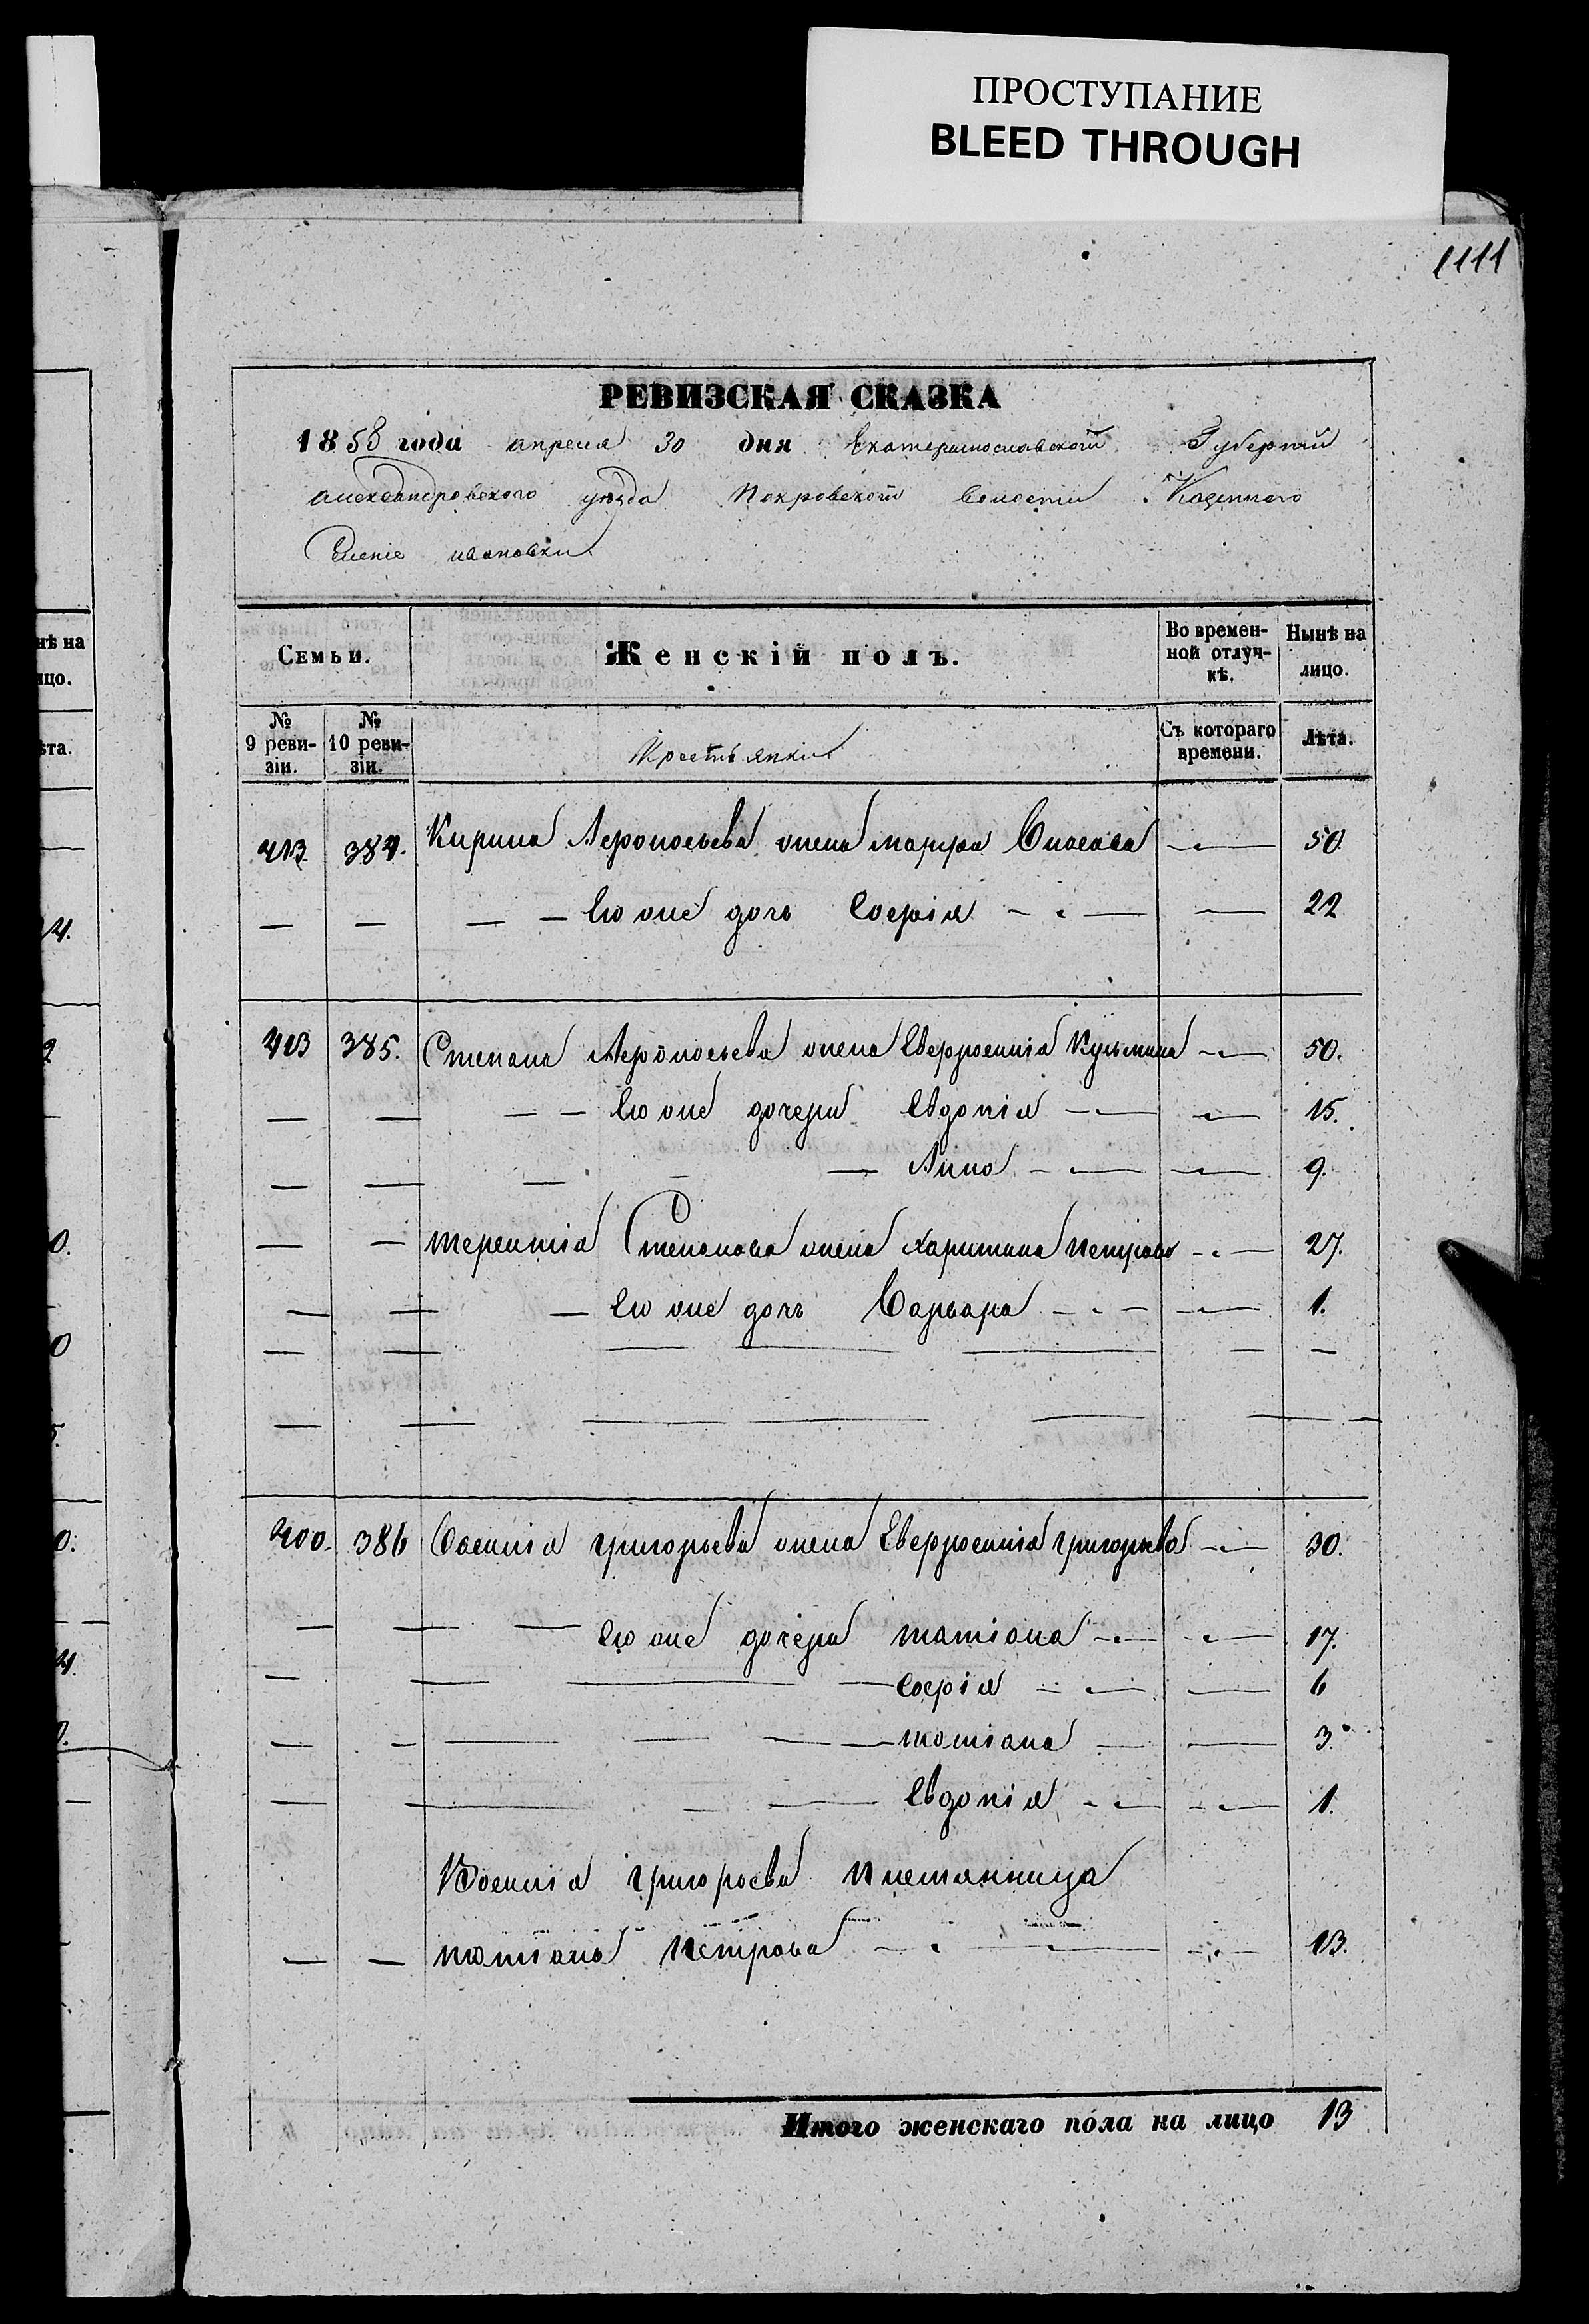 ПРОСТУПАНИЕ
BLEED THROUGH
1111
РЕВИЗСКАЯ СКАЗКА
1858 года апреля 30 дня Екатеринославской Губерній
александровского уѣзда Покровской волости Казенного
Селеніе ивановки
Семьи. Женскій полъ. Во времен- Нынѣ на
ной отлуч- лицо.
кѣ.
№ № 
9 реви- 10 реви- крестьянки Съ котораго Лѣта.
зіи. зіи. времени.
413 384. Кирила жена марфа 50.
Его же дочь Софія 22
413 385. Степана жена Евфросинія Кузьмина 50.
Его же дочери Евдокія 15.
Анна 9.
терентія Степанова жена харитина петрова 27.
Его же дочь Варвара 1.
400. 386 григорьева жена Евфросинія григорьева 30.
Его же дочери татіана 17.
Софія 6
татіана 3.
Евдокія 1.
григорьева племянница
татіана петрова 13.
Итого женскаго пола на лицо 13
нѣ на
ицо.
ѣта.